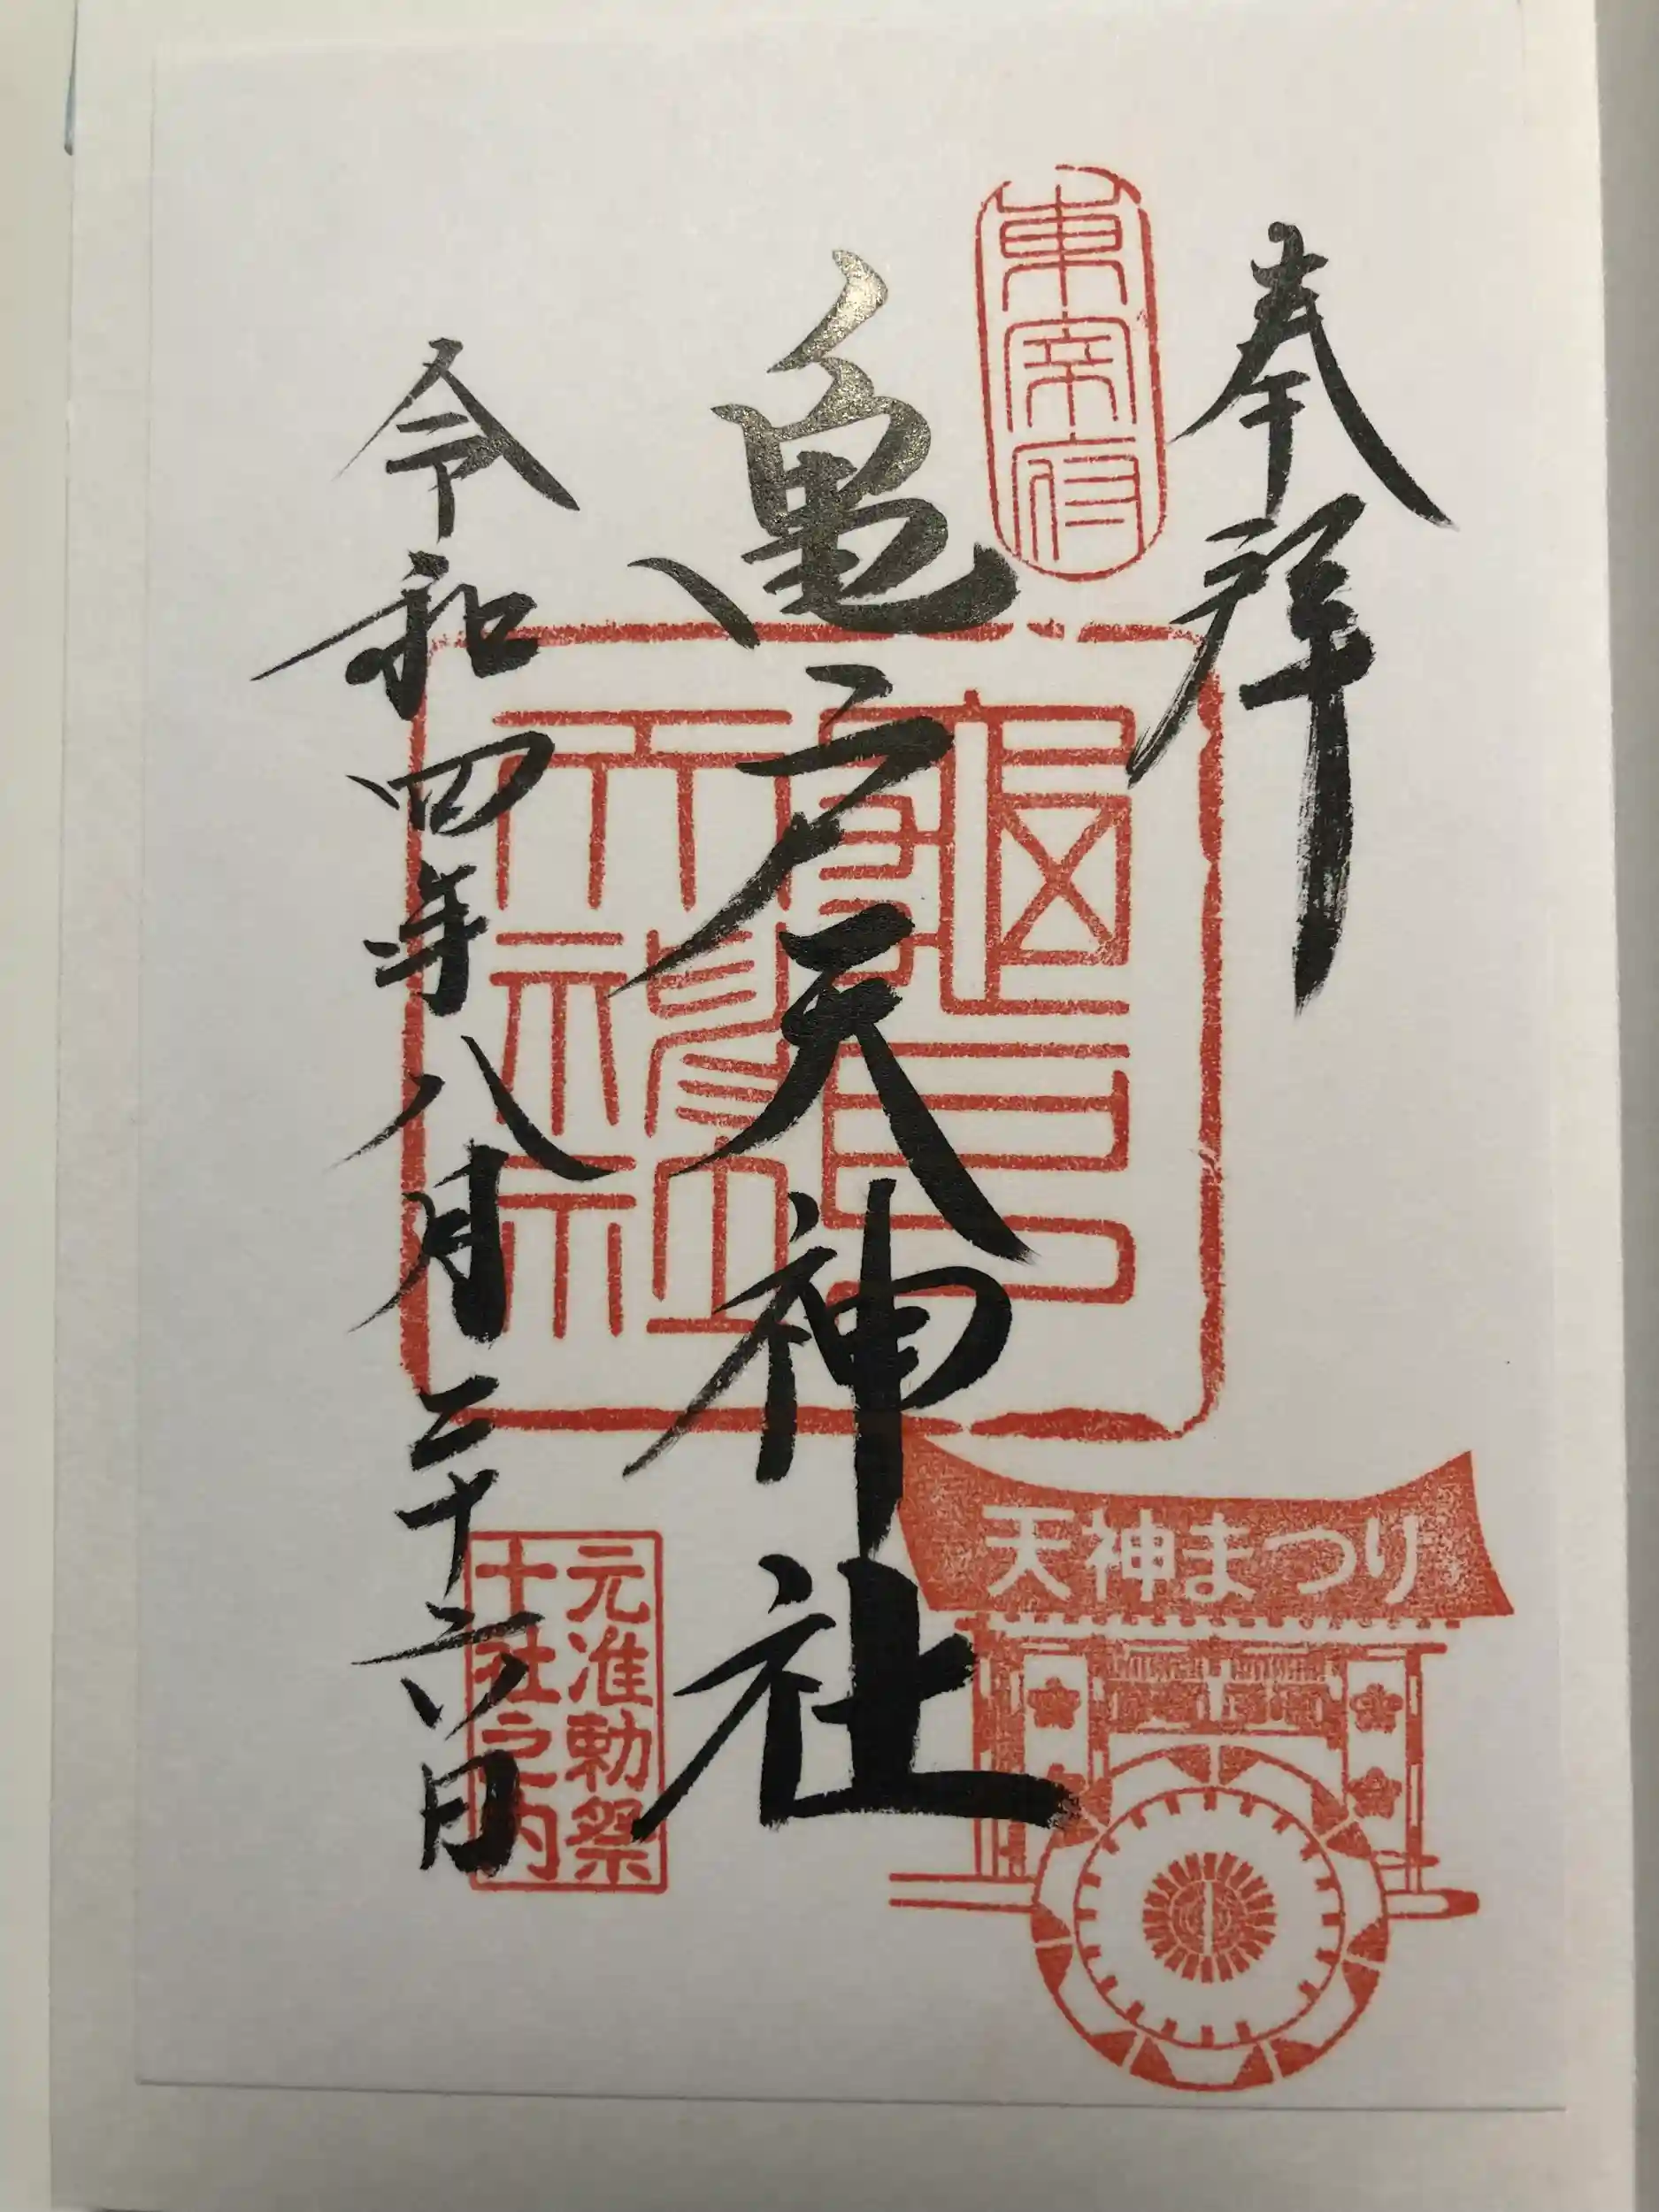 奉拝
東宰府
亀戸天神社
天神まつり
元准勅祭
十社之内
令和四年八月二十六日